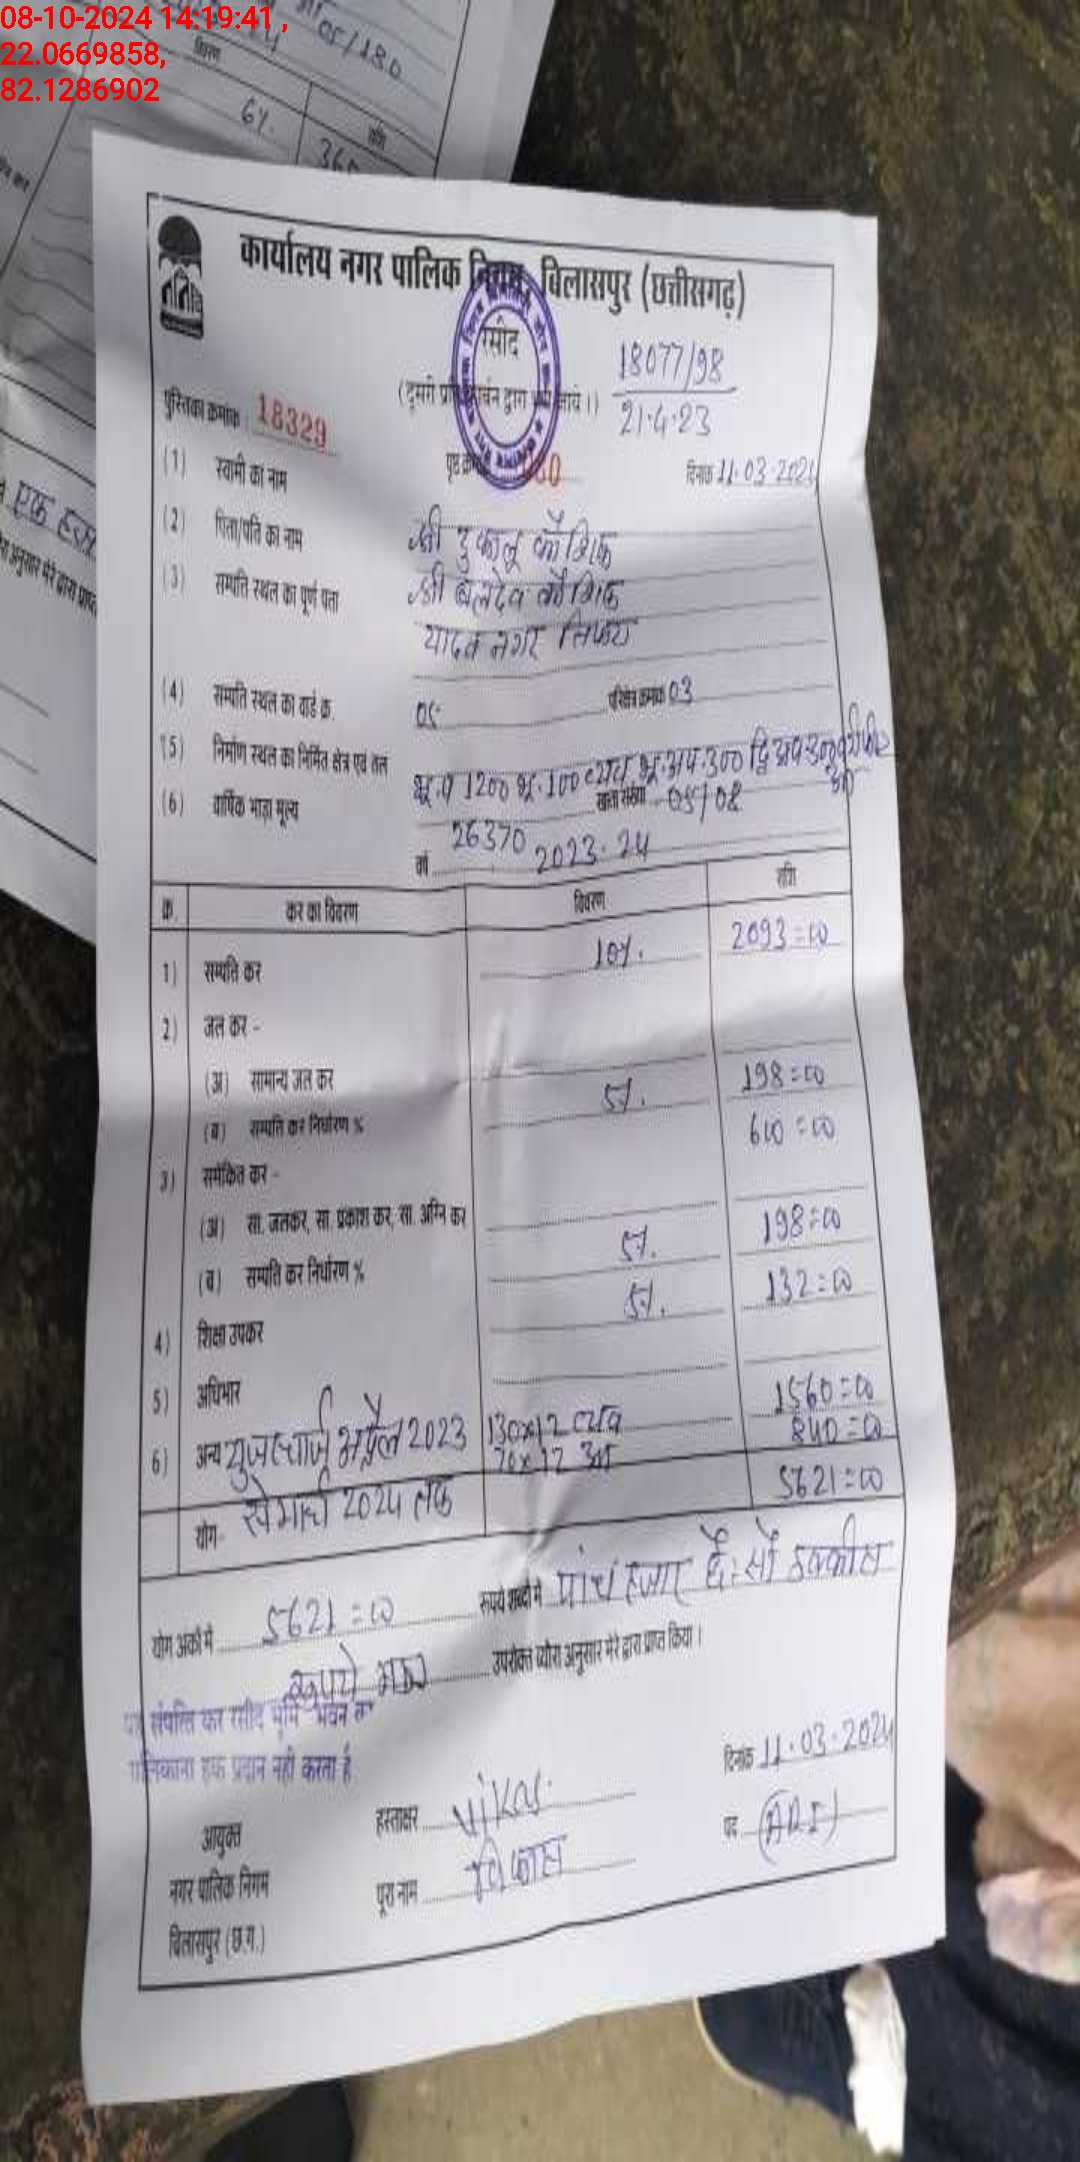 08-10-2024 14:19:41 ,
22.0669858,
82.1286902
05/180
विवरण
राशि
6%
कार्यालय नगर पालिक निगम, बिलासपुर (छत्तीसगढ़)
रसीद
(दूसरी प्रति द्वारा जाये।)
18077/98
21.4.23
पुस्तिका क्रमांक 18329
पृष्ठ क्र
दिनांक 11.03.2024
(1) स्वामी का नाम श्री दुकालू कौशिक
(2) पिता/पति का नाम श्री बलदेव कौशिक
(3) सम्पति स्थल का पूर्ण पता यादव नगर तिफरा
(4) सम्पति स्थल का वार्ड क्र. 05 परिक्षेत्र क्रमांक 03
(5) निर्माण स्थल का निर्मित क्षेत्र एवं तल भू.प 1200 भू.100 व्यव भू.आप.300 द्वि आप.300
(6) वार्षिक भाड़ा मूल्य 26370 खाता संख्या 05/08
वर्ष 2023.24
क्र. कर का विवरण विवरण राशि
1) सम्पति कर 10%. 2093=00
2) जल कर -
(अ) सामान्य जल कर 5%. 198=00
(ब) सम्पति कर निर्धारण % 600=00
3) समेकित कर -
(अ) सा. जलकर, सा. प्रकाश कर, सा. अग्नि कर 5%. 198=00
(ब) सम्पति कर निर्धारण % 5%. 132=00
4) शिक्षा उपकर
5) अधिभार 1560=00
6) अन्य युजरचार्ज अप्रैल 2023 130x12 व्यव 840=00
से मार्च 2024 तक 70x12 आ
योग- 5621=00
योग अंको में 5621=00 रूपये शब्दों में पांच हजार छै: सौ इक्कीस
रूपये मात्र उपरोक्त ब्योरा अनुसार मेरे द्वारा प्राप्त किया।
यह संपत्ति कर रसीद भूमि भवन का
मालिकाना हक प्रदान नही करता है
दिनांक 11.03.2024
आयुक्त हस्ताक्षर Vikas पद (ARI)
नगर पालिक निगम पूरा नाम विकास
बिलासपुर (छ.ग.)